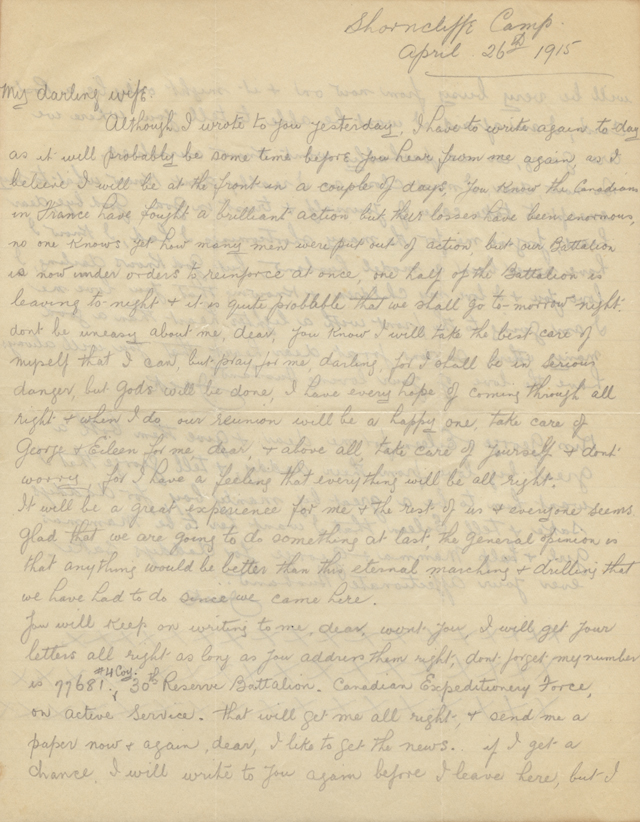 Shorncliffe Camp.
April 26th 1915
My darling wife.
Although I wrote to you yesterday, I have to write again to-day
as it will probably be some time before you hear from me again, as I
believe I will be at the front in a couple of days, you know the Canadians
in France have fought a brilliant action but their losses have been enormous,
no one knows yet how many men were put out of action, but our Battalion
is now under orders to reinforce at once, one half of the Battalion is
leaving to-night & it is quite probable that we shall go to-morrow night.
dont be uneasy about me, dear, you know I will take the best care of
myself that I can, but pray for me, darling, for I shall be in serious
danger, but Gods will be done, I have every hope of coming through all
right & when I do our reunion will be a happy one, take care of
George & Eileen for me, dear, & above all, take care of yourself & dont
worry, for I have a feeling that everything will be all right.
It will be a great experience for me & the rest of us & everyone seems
glad that we are going to do something at last, the general opinion is
that anything would be better than this eternal marching & drilling that
we have had to do since we came here.
You will keep on writing to me, dear, wont you, I will get your
letters all right as long as you address them right, dont forget my number
is 77681, #4 Coy. 30th Reserve Battalion. Canadian Expeditionery Force,
on active Service. that will get me all right, & send me a
paper now & again, dear, I like to get the news. if I get a
chance, I will write to you again before I leave here, but I